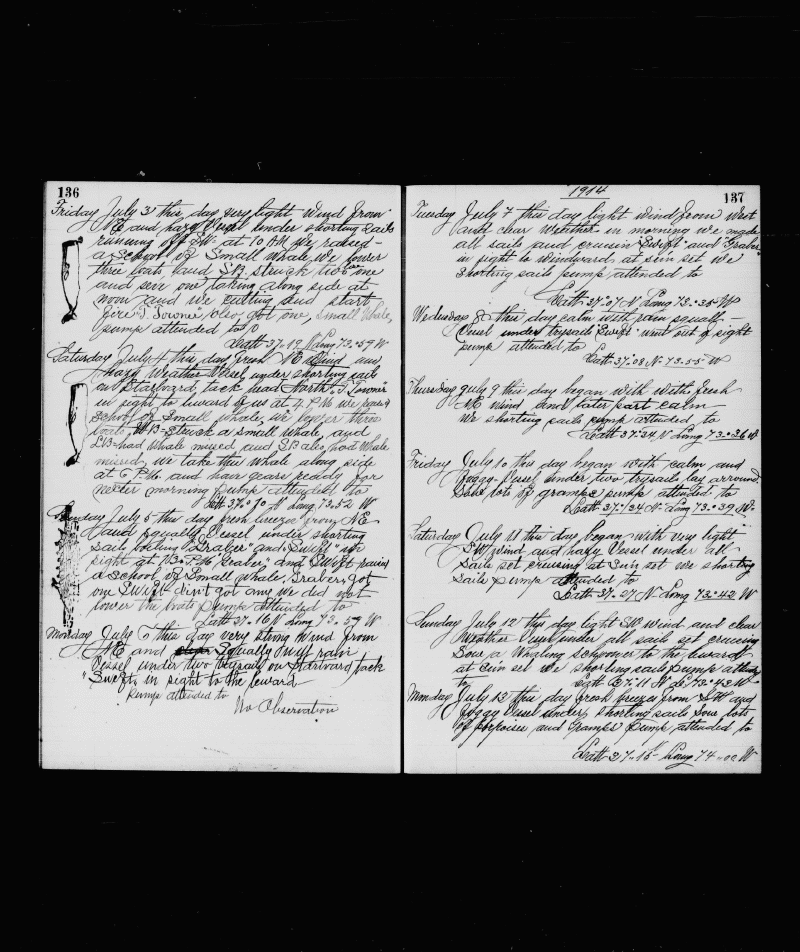 136
Friday July 3 this day very light wind from
NE and hazy Vessel under shorting sails
running off SW at 10 AM we raised
a School of Small Whale, we lower
three boats and SB struck two one
and save one taking along side at
noon and we cutting and start
fire "J. Towne" also got one, small Whale,
pump attended to
Latt 37.19 N Long 73.59 W
Saturday July 4 this day fresh NE Wind and
hazy weather Vessel under shorting sail
on Starboard tack head North
in sight to luward of us at 4 P.M. we raised
School of Small whale, we lower three
boats struck a small whale, and
LB had whale missed and SB also had Whale
missed, we take this whale along side
at 6 P.M. and have gears ready for
morning pump attended to
Latt 37.70 N Long 73.52 W
Sunday July 5 this day fresh breeze from NE
and squally Vessel under shorting
sail "Graber" and "Swift" in
sight at P.M. "Graber" and Swift raised
a School of Small Whale, Graber, got
one Swift didn't got any we did not
lower the boats pump attended to
Latt 37.16 N Long 73.59 W
Monday July 6 this day very string Wind from
NE and Squally Wiy rain
Vessel under two trysails on Starboard tack
"Swift" in sight to the luward
pump attended to
No Observation
1914
137
Tuesday July 7 this day light wind from West
and clear Weather in morning we made
all sails and cruisin "Swift" and "Graber"
in sight to Windward, at sun set we
Shorting sails pump attended to
Latt 37.07 N Long 73.35 W
Wednesday 8 this day calm with rain squall
Vessel under trysails "Swift" went out of sight
pump attended to
Latt 37.08 N 73.55 W
Thursday July 9 this day began with with fresh
NE wind and later part calm
We shorting sails pump attended to
Latt 37.24 N Long 73.36 W
Friday July 10 this day began with calm and
foggy Vessel under two trysails lay arround
Sow lots of gramps pump attended to
Latt 37.24 N Long 73.39 W
Saturday July 11 this day began with very light
SW wind and hazy Vessel under all
Sails set cruising at Sun set we shorting
sails pump attended to
Latt 37.27 N Long 73.42 W
Sunday July 12 this day light SW wind and clear
Weather under all sail set cruising
Sow a schooner to the luward,
at Sun set we shorting sails pump attend
to Latt 37.11 N Lo 73.43 W
Monday July 13 this day fresh breezes from SW and
foggy Vessel under shorting sails Sow lots
of porpoises and Gramps pump attended to
Latt 37.15 Long 74.00 W